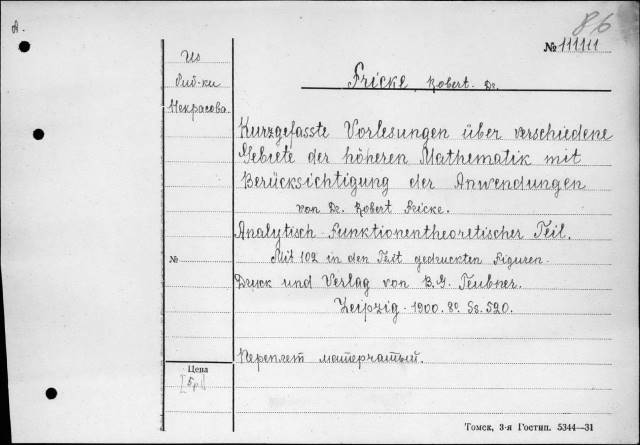 A.
86
№ 111111
Из
биб-ки
Некрасова
Fricke, Robert. Dr.
Kurzgefasste Vorlesungen über verschiedene
Gebiete der höheren Mathematik mit
Berücksichtigung der Anwendungen
von Dr. Robert Fricke.
Analytisch-Funktionentheoretischer Teil.
Mit 102 in den Text gedruckten Figuren.
№
Druck und Verlag von B. G. Teubner.
Leipzig. 1900. 8º. Ss. 520.
Переплет матерчатый.
Цена
5р
Томск, 3-я Гостип. 5344—31